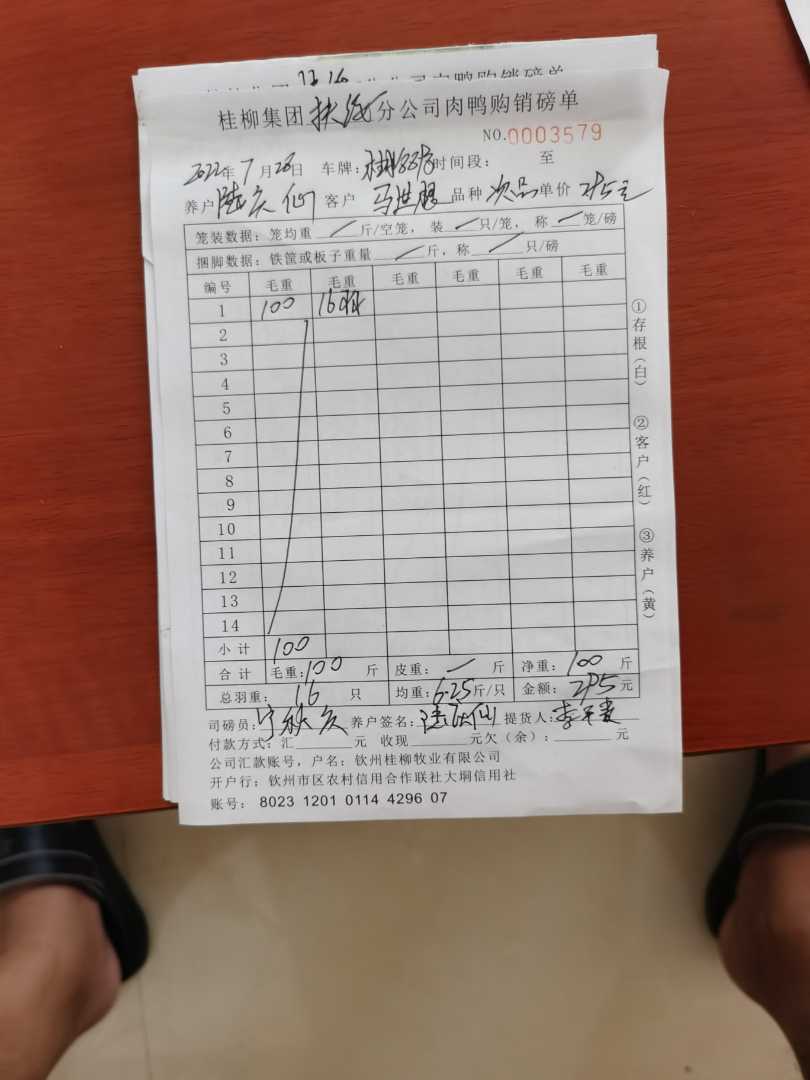 桂柳集团扶绥分公司肉鸭购销磅单
NO.0003579
2022年7月28日 车牌: 时间段: 至
养户 陆庆仙 客户 马世 品种 次品 单价 2.95元
笼装数据: 笼均重 / 斤/空笼, 装 / 只/笼, 称 / 笼/磅
捆脚数据: 铁筐或板子重量 / 斤, 称 / 只/磅
编号 毛重 毛重 毛重 毛重 毛重 毛重
1 100 16羽
2
3
4
5
6
7
8
9
10
11
12
13
14
小计 100
合计 毛重: 100 斤 皮重: / 斤 净重: 100 斤
总羽重: 16 只 均重: 6.25斤/只 金额: 295元
司磅员: 宁秋庆 养户签名: 陆庆仙 提货人: 李
付款方式: 汇 元 收现 元欠(余): 元
公司汇款账号, 户名: 钦州桂柳牧业有限公司
开户行: 钦州市区农村信用合作联社大垌信用社
账号: 8023 1201 0114 4296 07
①存根(白)
②客户(红)
③养户(黄)